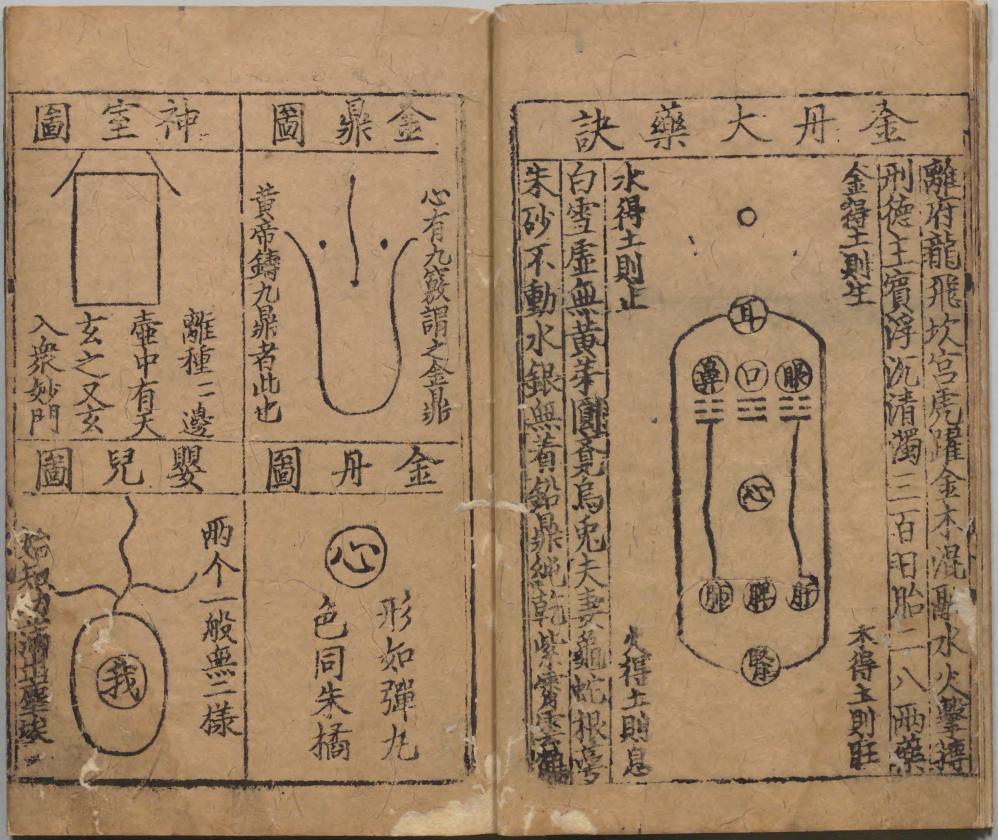 金丹大藥訣
離府龍飛坎宮虎躍金木混融水火擊搏
刑德主賓浮沉清濁三百日胎二八兩藥
金得土則生
木得土則旺
耳
眼
口
鼻
心
肝
脾
肺
腎
水得土則止
火得土則息
白雪虛無黃芽圓覺烏兔夫妻龜蛇根蒂
朱砂不動水銀無著鉛鼎
金鼎圖
心有九竅謂之金鼎
黃帝鑄九鼎者此也
神室圖
離種二邊
壺中有天
玄之又玄
入衆妙門
金丹圖
心
形如彈丸
色同朱橘
嬰兒圖
兩个一般無二樣
我